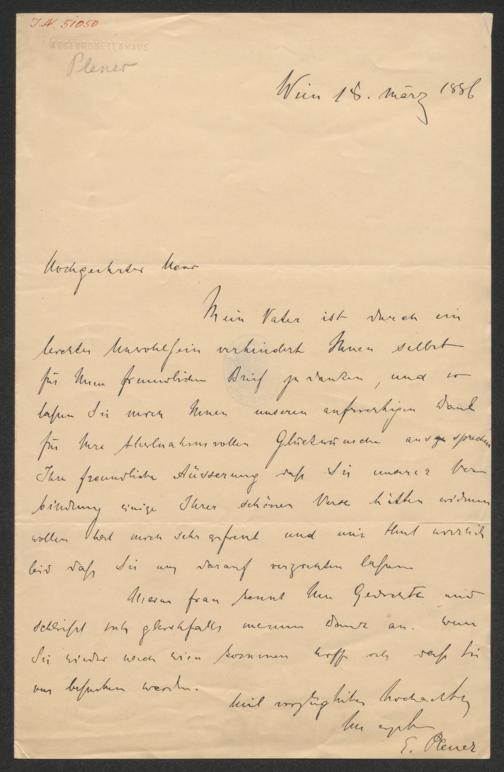 J.N. 51050
ABGEORDNETENHAUS
Plener
Wien 18. März 1886
Hochgeehrter Herr
Mein Vater ist durch ein
leichtes Unwohlsein verhindert Ihnen selbst
für Ihren freundlichen Brief zu danken, und so
laßen Sie mich Ihnen unseren aufrichtigen Dank
für Ihre theilnahmsvollen Glückwünsche auszusprechen
Ihre freundliche Äusserung daß Sie unserer Ver
bindung einige Ihrer schönen Verse hätten widmen
wollen hat mich sehr gefreut und mir thut wirklich
leid daß Sie uns darauf verzichten laßen
Meine Frau kennt Ihre Gedichte und
schließt sich gleichfalls meinem Danke an. Wenn
Sie wieder nach Wien kommen hoffe ich daß Sie
uns besuchen werden.
Mit vorzüglicher Hochachtung
Ihr ergeb
E. Plener